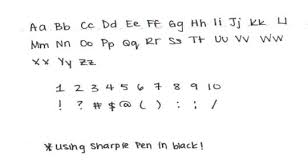 Aa Bb Cc Dd Ee Ff Gg Hh Ii Jj Kk Ll
Mm Nn Oo Pp Qq Rr Ss Tt Uu Vv Ww
Xx Yy Zz
1 2 3 4 5 6 7 8 9 10
! ? # $ @ ( ) : ; /
*using Sharpie Pen in black!